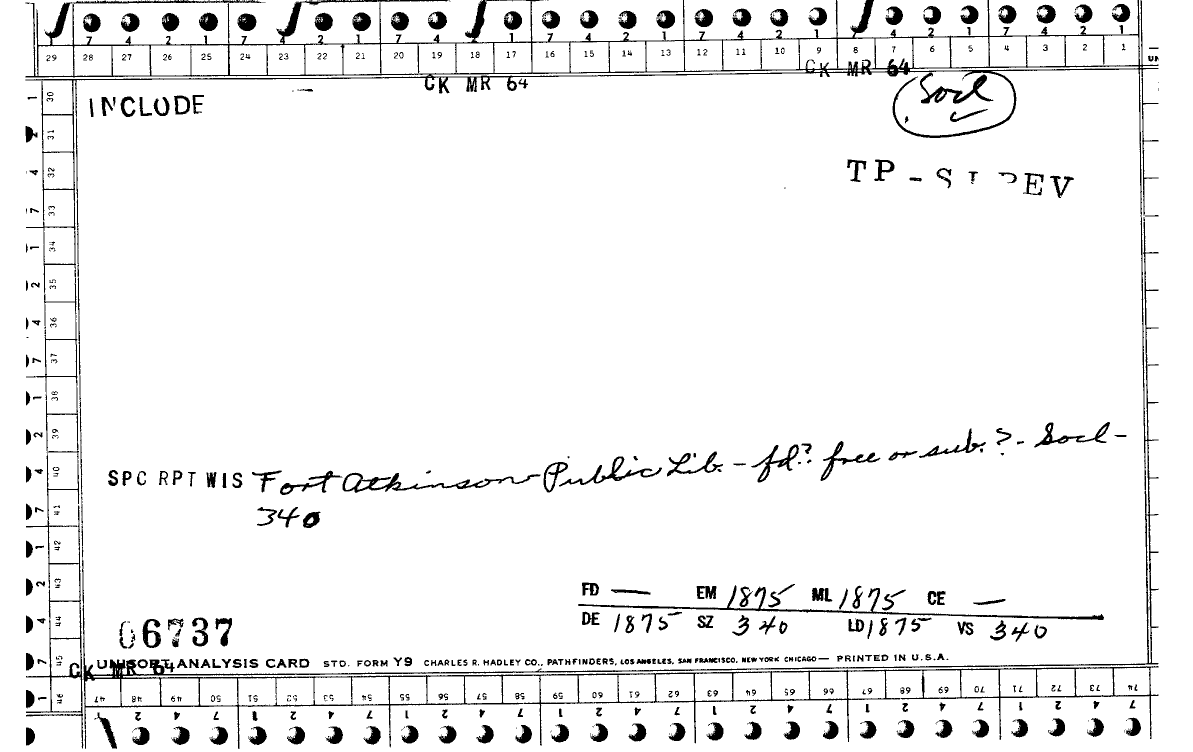 7 4 2 1 7 4 2 1 7 4 2 1 7 4 2 1 7 4 2 1 7 4 2 1
29 28 27 26 25 24 23 22 21 20 19 18 17 16 15 14 13 12 11 10 9 8 7 6 5 4 3 2 1
CK MR 64
CK MR 64
INCLUDE
Socl
TP -
1 30
2 31
4 32
7 33
1 34
2 35
4 36
7 37
1 38
2 39
4 40
7 41
1 42
2 43
4 44
7 45
1 46
SPC RPT WIS Fort Atkinson - Public Lib. - fd.? free or sub.? - Socl -
340
FD — EM 1875 ML 1875 CE —
DE 1875 SZ 340 LD 1875 VS 340
06737
CK MR 64
UNISORT ANALYSIS CARD STD. FORM Y9 CHARLES R. HADLEY CO., PATHFINDERS, LOS ANGELES, SAN FRANCISCO, NEW YORK CHICAGO — PRINTED IN U.S.A.
47 48 49 50 51 52 53 54 55 56 57 58 59 60 61 62 63 64 65 66 67 68 69 70 71 72 73 74
2 4 7 1 2 4 7 1 2 4 7 1 2 4 7 1 2 4 7 1 2 4 7 1 2 4 7